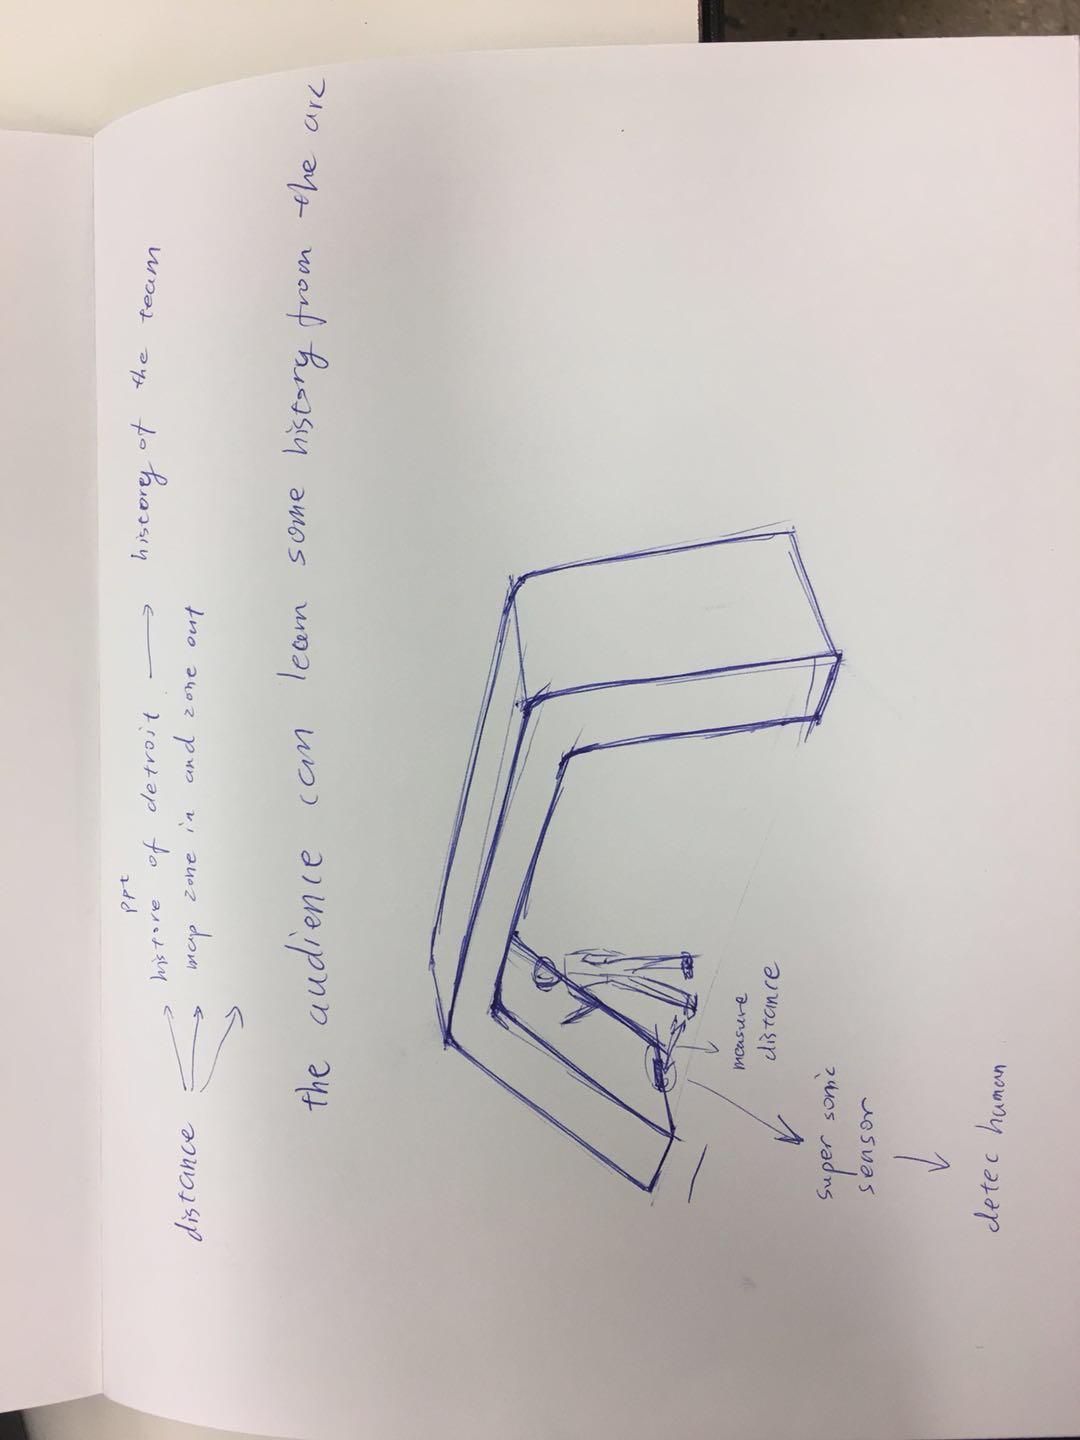 ppt
distance → histore of detroit → history of the team
map zone in and zone out
the audience can learn some history from the arc
measure
distance
super sonic
sensor
detec human